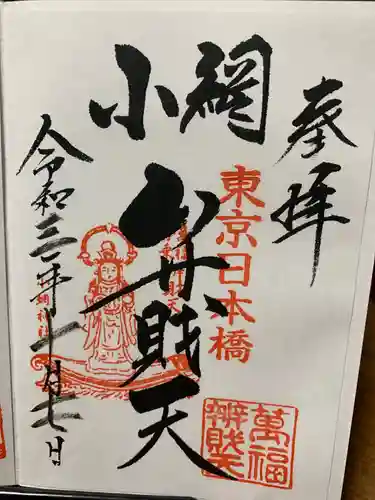 奉拝
東京日本橋
小網
弁財天
萬福
辨財天
令和三年十一月七日